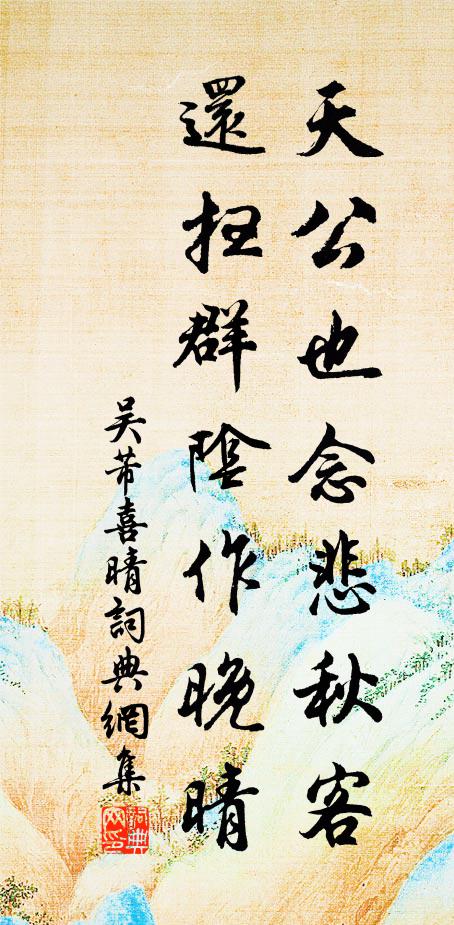 天公也念悲秋客
還扫群陰作晚晴
吴芾喜晴詞典網集
詞典
网印